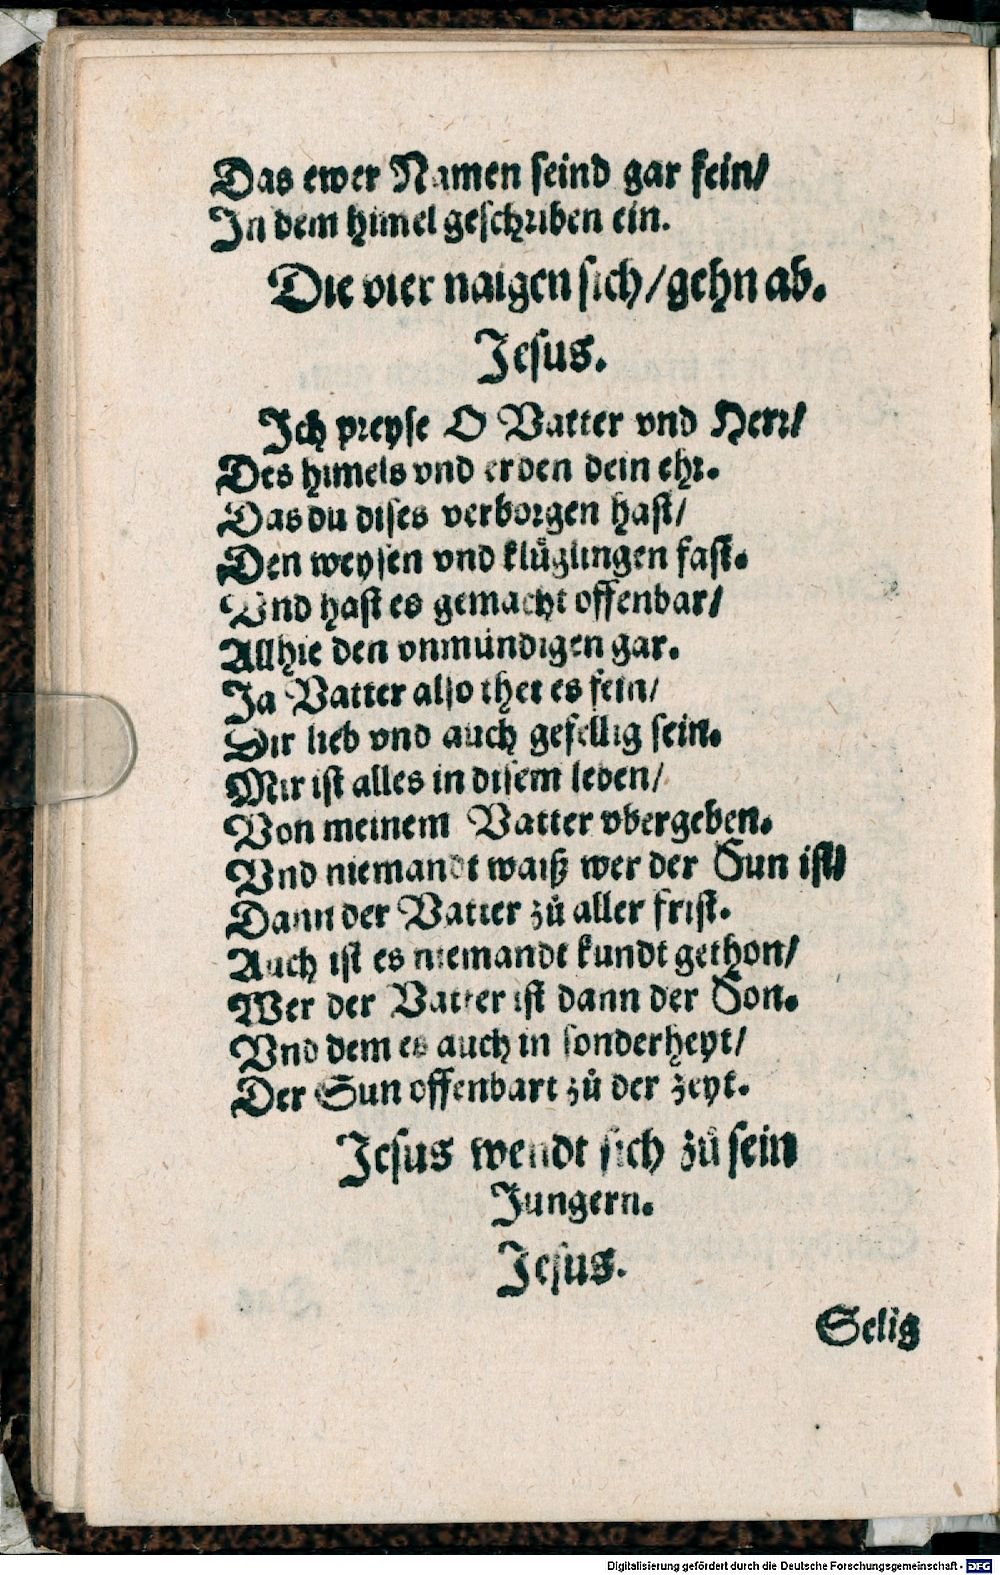 Das ewer Namen seind gar fein/
In dem himel geschriben ein.
Die vier naigen sich/gehn ab.
Jesus.
Ich preyse O Vatter vnd Herr/
Des himels vnd erden dein ehr.
Das du dises verborgen hast/
Den weysen vnd klůglingen fast.
Vnd hast es gemacht offenbar/
Allhie den vnmündigen gar.
Ja Vatter also thet es fein/
Dir lieb vnd auch gefellig sein.
Mir ist alles in disem leben/
Von meinem Vatter vbergeben.
Vnd niemandt waiß wer der Sun ist/
Dann der Vatter zů aller frist.
Auch ist es niemandt kundt gethon/
Wer der Vatter ist dann der Son.
Vnd dem es auch in sonderheyt/
Der Sun offenbart zů der zeyt.
Jesus wendt sich zů sein
Jungern.
Jesus.
Selig
Digitalisierung gefördert durch die Deutsche Forschungsgemeinschaft - DFG